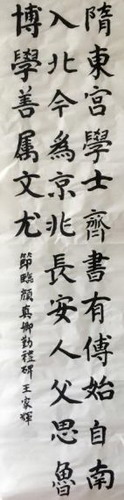 隋東宮學士齊書有傳始自南
入北今爲京兆長安人父思魯
博學善属文尤
節臨顏真卿勤禮碑 王家輝